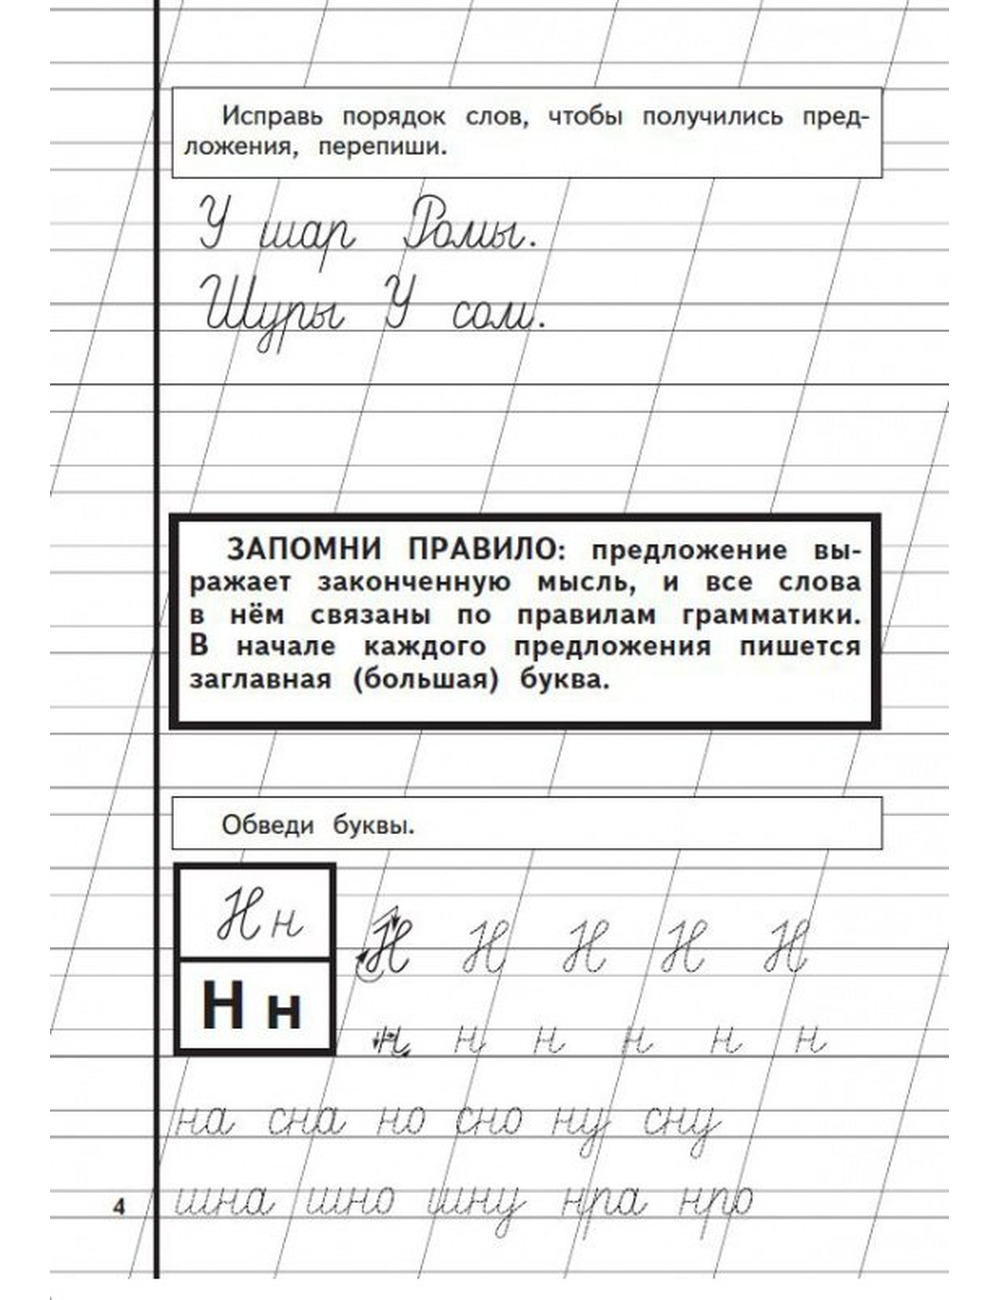 Исправь порядок слов, чтобы получились пред-
ложения, перепиши.
У шар Ромы.
Шуры У сом.
ЗАПОМНИ ПРАВИЛО: предложение вы-
ражает законченную мысль, и все слова
в нём связаны по правилам грамматики.
В начале каждого предложения пишется
заглавная (большая) буква.
Обведи буквы.
Н н
Н Н Н Н Н
Н н
н н н н н н
на сна но сно ну сну
шна шно шну нра нро
4